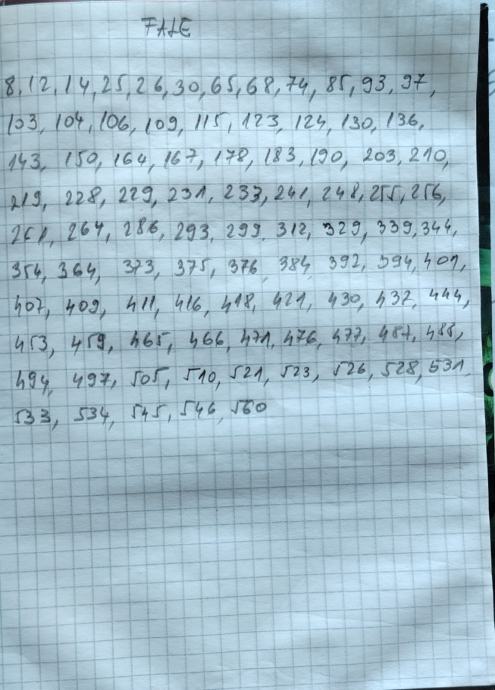 FALE
8, 12, 14, 25, 26, 30, 65, 68, 74, 85, 93, 97,
103, 104, 106, 109, 115, 123, 124, 130, 136,
143, 150, 164, 167, 178, 183, 190, 203, 210,
219, 228, 229, 231, 233, 241, 248, 255, 256,
261, 264, 286, 293, 299, 312, 329, 339, 344,
354, 364, 373, 375, 376, 384, 392, 394, 401,
407, 409, 411, 416, 418, 421, 430, 437, 444,
453, 459, 465, 466, 471, 476, 477, 487, 488,
494, 497, 505, 510, 521, 523, 526, 528, 531
533, 534, 545, 546, 560